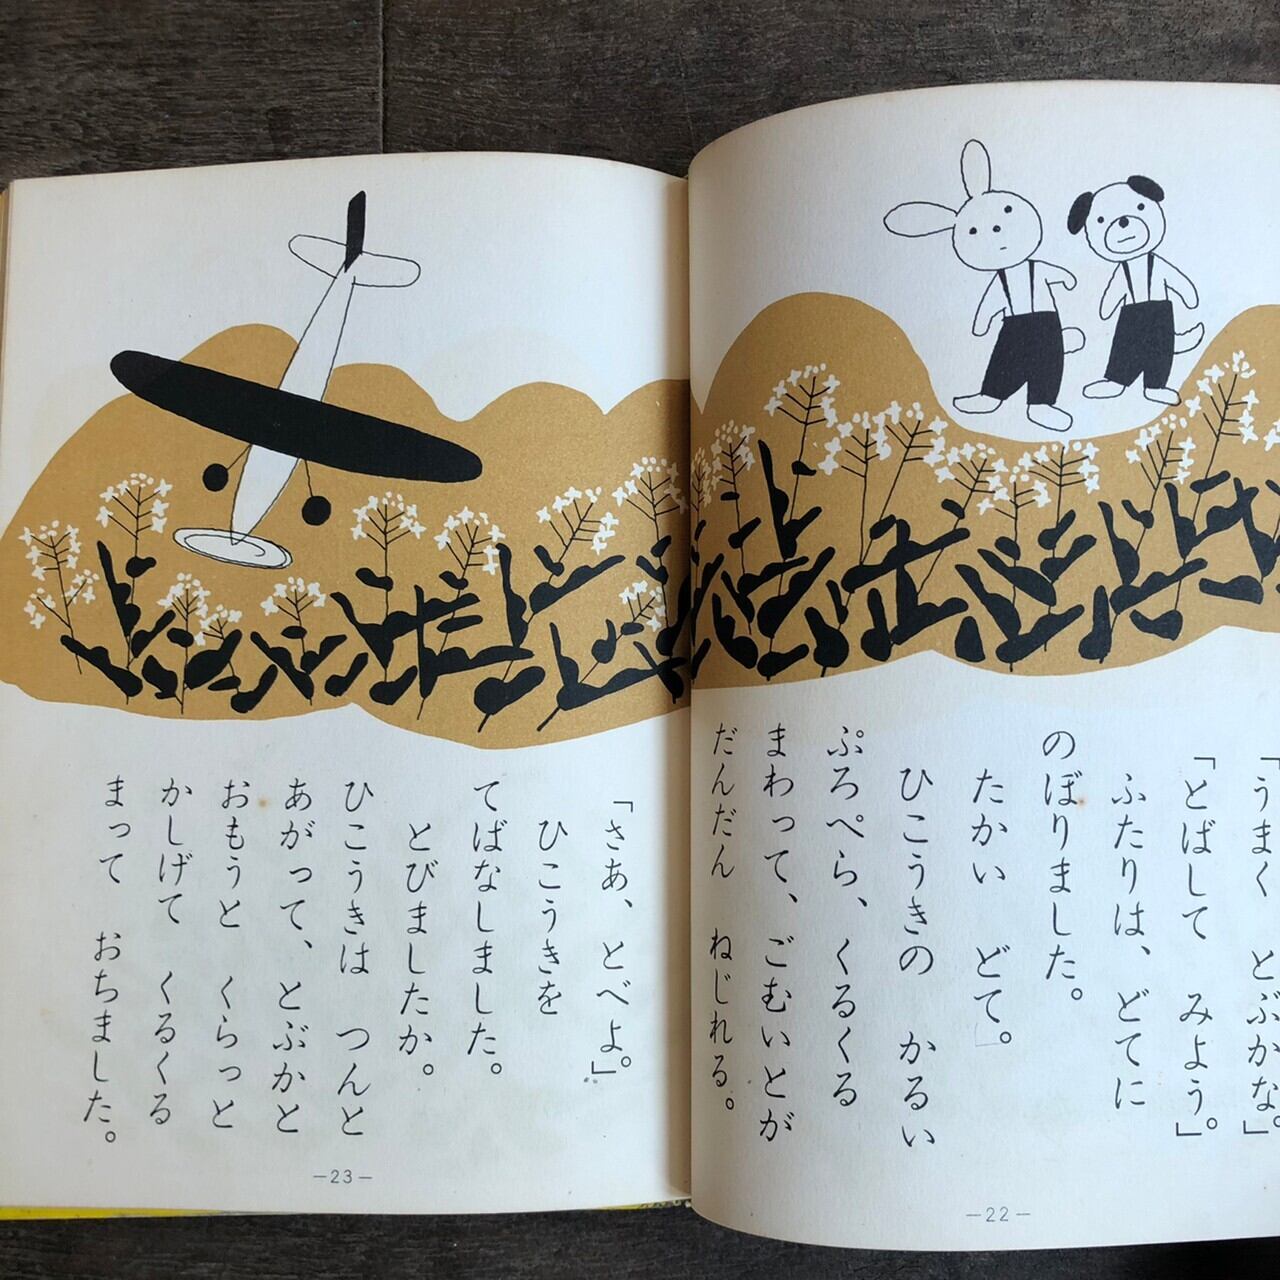 「うまく　とぶかな。」
「とばして　みよう。」
ふたりは、どてに
のぼりました。
たかい　どて。
ひこうきの　かるい
ぷろぺら、くるくる
まわって、ごむいとが
だんだん　ねじれる。
—22—
「さあ、とべよ。」
ひこうきを
てばなしました。
とびましたか。
ひこうきは　つんと
あがって、とぶかと
おもうと　くらっと
かしげて　くるくる
まって　おちました。
—23—